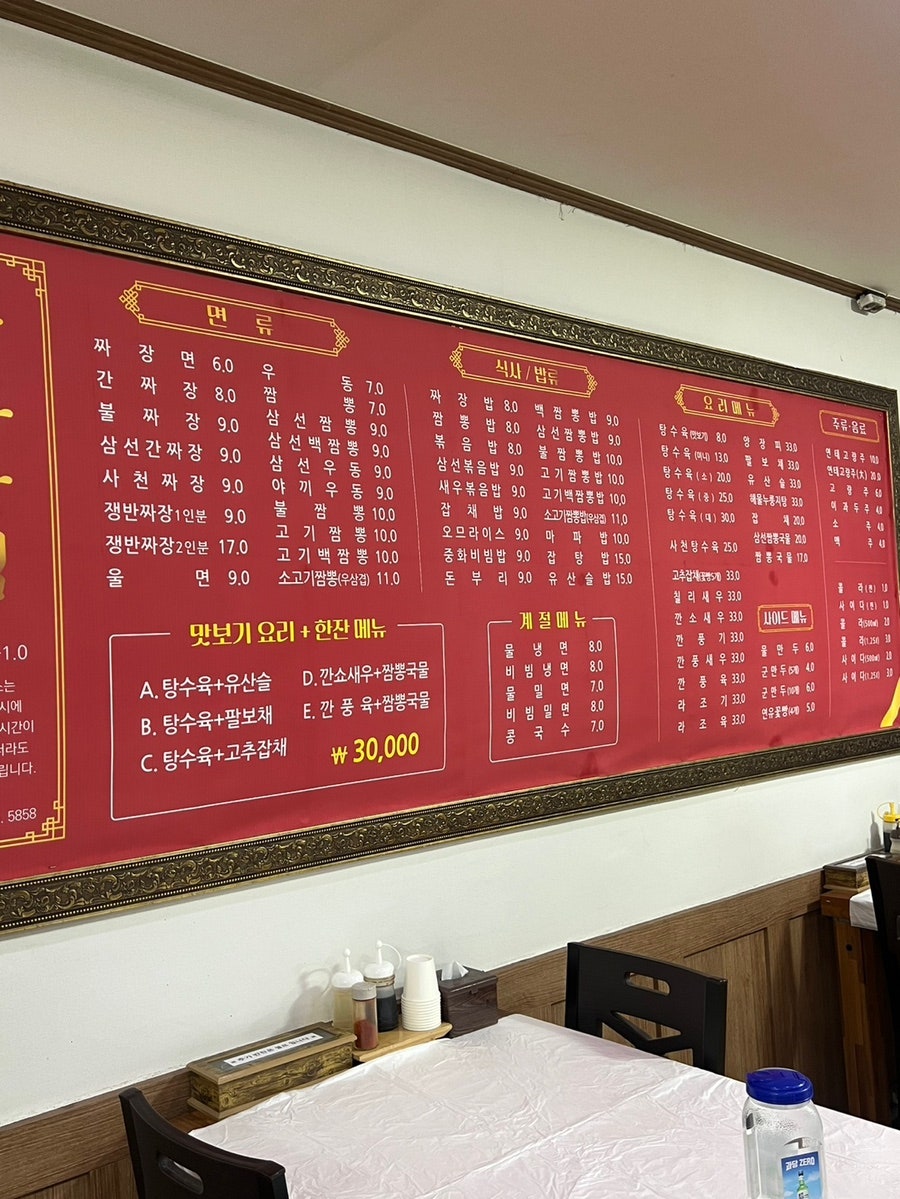 면 류
짜 장 면 6.0
간 짜 장 8.0
불 짜 장 9.0
삼선간짜장 9.0
사 천 짜 장 9.0
쟁반짜장1인분 9.0
쟁반짜장2인분 17.0
울 면 9.0
우 동 7.0
짬 뽕 7.0
삼 선 짬 뽕 9.0
삼선백짬뽕 9.0
삼 선 우 동 9.0
야 끼 우 동 9.0
불 짬 뽕 10.0
고 기 짬 뽕 10.0
고기백짬뽕 10.0
소고기짬뽕(우삼겹) 11.0
맛보기 요리 + 한잔 메뉴
A. 탕수육+유산슬
B. 탕수육+팔보채
C. 탕수육+고추잡채
D. 깐쇼새우+짬뽕국물
E. 깐 풍 육+짬뽕국물
₩ 30,000
식사 / 밥류
짜 장 밥 8.0
짬 뽕 밥 8.0
볶 음 밥 8.0
삼선볶음밥 9.0
새우볶음밥 9.0
잡 채 밥 9.0
오므라이스 9.0
중화비빔밥 9.0
돈 부 리 9.0
백 짬 뽕 밥 9.0
삼선짬뽕밥 9.0
불 짬 뽕 밥 10.0
고기짬뽕밥 10.0
고기백짬뽕밥 10.0
소고기짬뽕밥(우삼겹) 11.0
마 파 밥 10.0
잡 탕 밥 15.0
유 산 슬 밥 15.0
계 절 메 뉴
물 냉 면 8.0
비 빔 냉 면 8.0
물 밀 면 7.0
비 빔 밀 면 8.0
콩 국 수 7.0
요리메뉴
탕수육(맛보기) 8.0
탕수육(미니) 13.0
탕수육(소) 20.0
탕수육(중) 25.0
탕수육(대) 30.0
사천탕수육 25.0
고추잡채(꽃빵5개) 33.0
칠 리 새 우 33.0
깐 소 새 우 33.0
깐 풍 기 33.0
깐 풍 새 우 33.0
깐 풍 육 33.0
라 조 기 33.0
라 조 육 33.0
양 장 피 33.0
팔 보 채 33.0
유 산 슬 33.0
해물누룽지탕 33.0
잡 채 20.0
삼선짬뽕국물 20.0
짬 뽕 국 물 17.0
사이드 메뉴
물 만 두 6.0
군만두(5개) 4.0
군만두(10개) 6.0
연유꽃빵(4개) 5.0
주류·음료
연태고량주 10.0
연태고량주(大) 20.0
고 량 주 6.0
이 과 두 주 4.0
소 주 4.0
맥 주 4.0
콜 라 (캔) 1.0
사 이 다 (캔) 1.0
콜 라(500㎖) 2.0
콜 라(1.25ℓ) 3.0
사 이 다(500㎖) 2.0
사 이 다(1.25ℓ) 3.0
1.0
시에
시간이
더라도
립니다.
5858
과당 ZERO